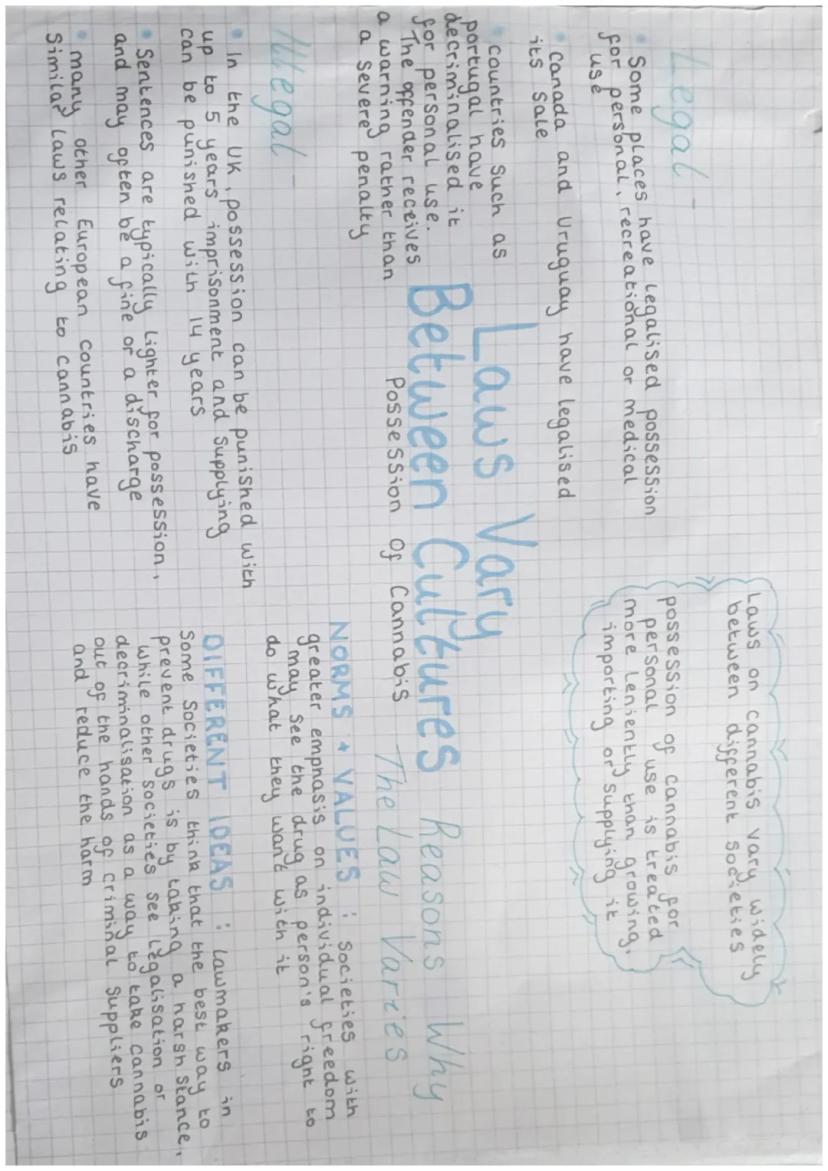 Legal -
• Some places have legalised possession
for personal, recreational or medical
use
• Canada and Uruguay have legalised
its sale
• countries such as
portugal have
decriminalised it
for personal use.
The offender receives
a warning rather than
a severe penalty
Laws on cannabis vary widely
between different societies
possession of cannabis for
personal use is treated
more leniently than growing,
importing or supplying it
Laws Vary
Between Cultures
Possession of Cannabis
Illegal -
• In the UK, possession can be punished with
up to 5 years imprisonment and supplying
can be punished with 14 years
• Sentences are typically lighter for possession,
and may often be a fine or a discharge
• many other European countries have
similar laws relating to cannabis
Reasons Why
The Law Varies
NORMS + VALUES : Societies with
greater emphasis on individual freedom
may see the drug as person's right to
do what they want with it
DIFFERENT IDEAS : Lawmakers in
some societies think that the best way to
prevent drugs is by taking a harsh stance,
while other societies see legalisation or
decriminalisation as a way to take cannabis
out of the hands of criminal suppliers
and reduce the harm